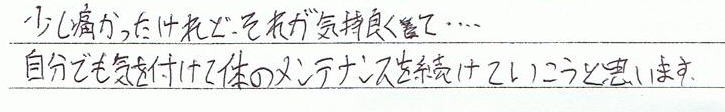 少し痛かったけれど、それが気持良くて‥‥
自分でも気を付けて体のメンテナンスを続けていこうと思います.